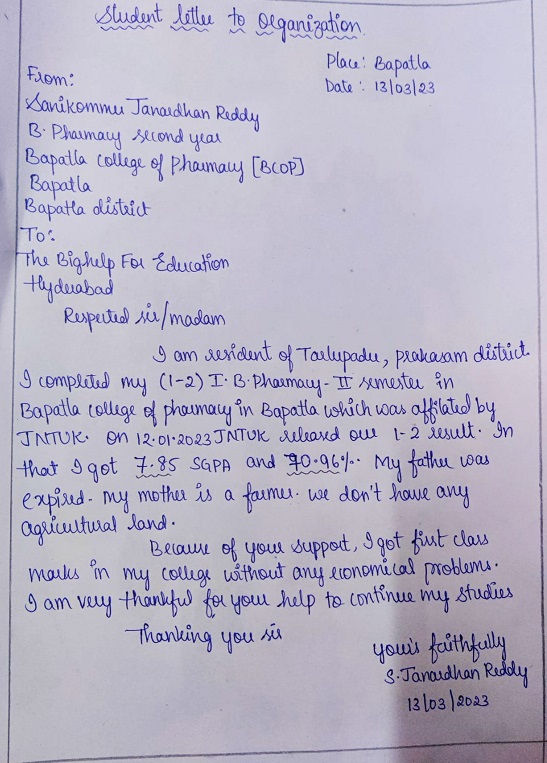 Student letter to Organization.
Place: Bapatla
Date: 13/03/23
From:
Sanikommu Janardhan Reddy
B. Pharmacy second year
Bapatla college of Pharmacy [BCOP]
Bapatla
Bapatla district
To:
The Bighelp For Education
Hyderabad
Respected sir/madam
I am resident of Tarlupadu, prakasam district.
I completed my (1-2) I. B. Pharmacy - II semester in
Bapatla college of pharmacy in Bapatla which was affilated by
JNTUK. On 12.01.2023 JNTUK released our 1-2 result. In
that I got 7.85 SGPA and 70.96%. My father was
expired. my mother is a farmer. we don't have any
agricultural land.
Because of your support, I got first class
marks in my college without any economical problems.
I am very thankful for your help to continue my studies
Thanking you sir
your's faithfully
S. Janardhan Reddy
13/03/2023